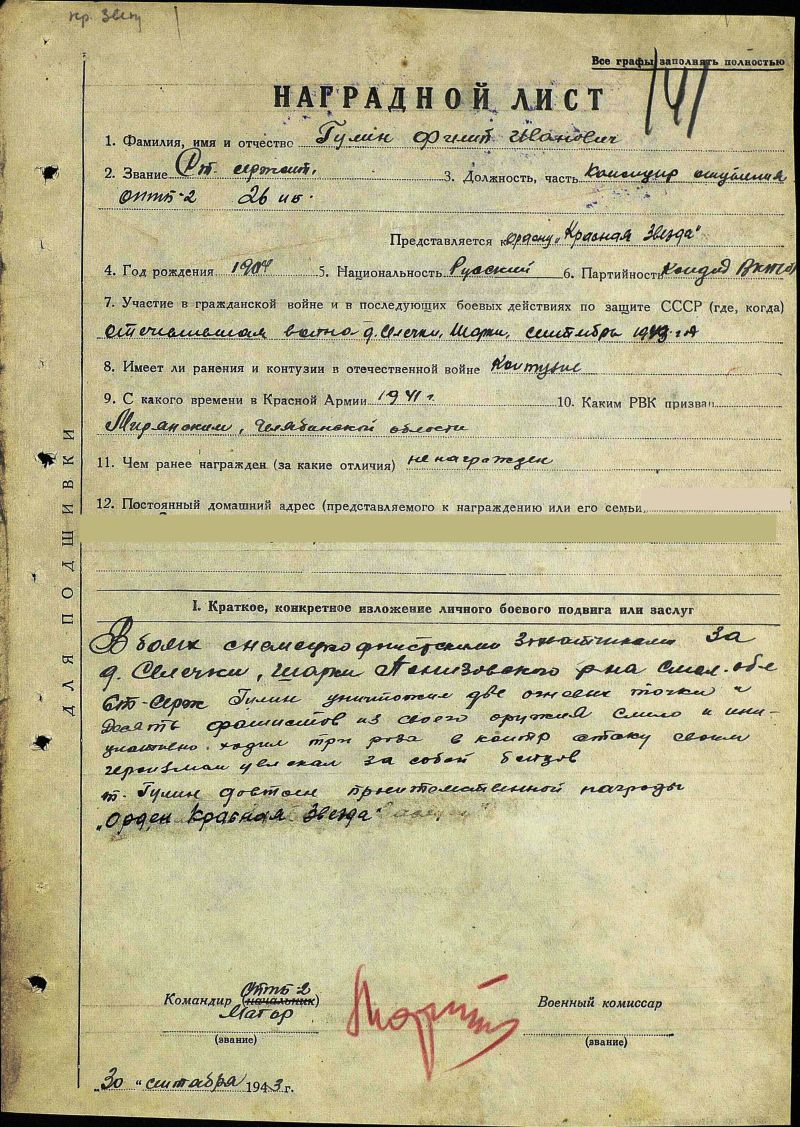 пр. Звезд
Все графы заполнять полностью
141
НАГРАДНОЙ ЛИСТ
1. Фамилия, имя и отчество Гулин Филип Иванович
2. Звание Ст. сержант. 3. Должность, часть Командир отделения
ОПТБ-2 26
Представляется к ордену „Красная Звезда"
4. Год рождения 1904 5. Национальность Русский 6. Партийность Кандид ВКП(б)
7. Участие в гражданской войне и в последующих боевых действиях по защите СССР (где, когда)
отечественная война д. Селечки, Шарки, сентябрь 1943 г
8. Имеет ли ранения и контузии в отечественной войне Контузие
9. С какого времени в Красной Армии 1941 г. 10. Каким РВК призван
Челябинской области
11. Чем ранее награжден (за какие отличия) не награжден
12. Постоянный домашний адрес (представляемого к награждению или его семьи
ДЛЯ ПОДШИВКИ
I. Краткое, конкретное изложение личного боевого подвига или заслуг
В боях с немецко фашистскими захватчиками за
д. Селечки, Шарки Понизовского р-на Смол. обл
Ст-Серж Гулин уничтожил две огневых точки и
десять фашистов из своего оружия смело и ини-
циативно ходил три раза в контр атаку своим
героизмом увлекал за собой бойцов
т. Гулин достоен правительственной награды
„Орден Красная Звезда"
Командир ОПТБ-2 (начальник) Военный комиссар
Магор
(звание) (звание)
„30" сентября 1943 г.